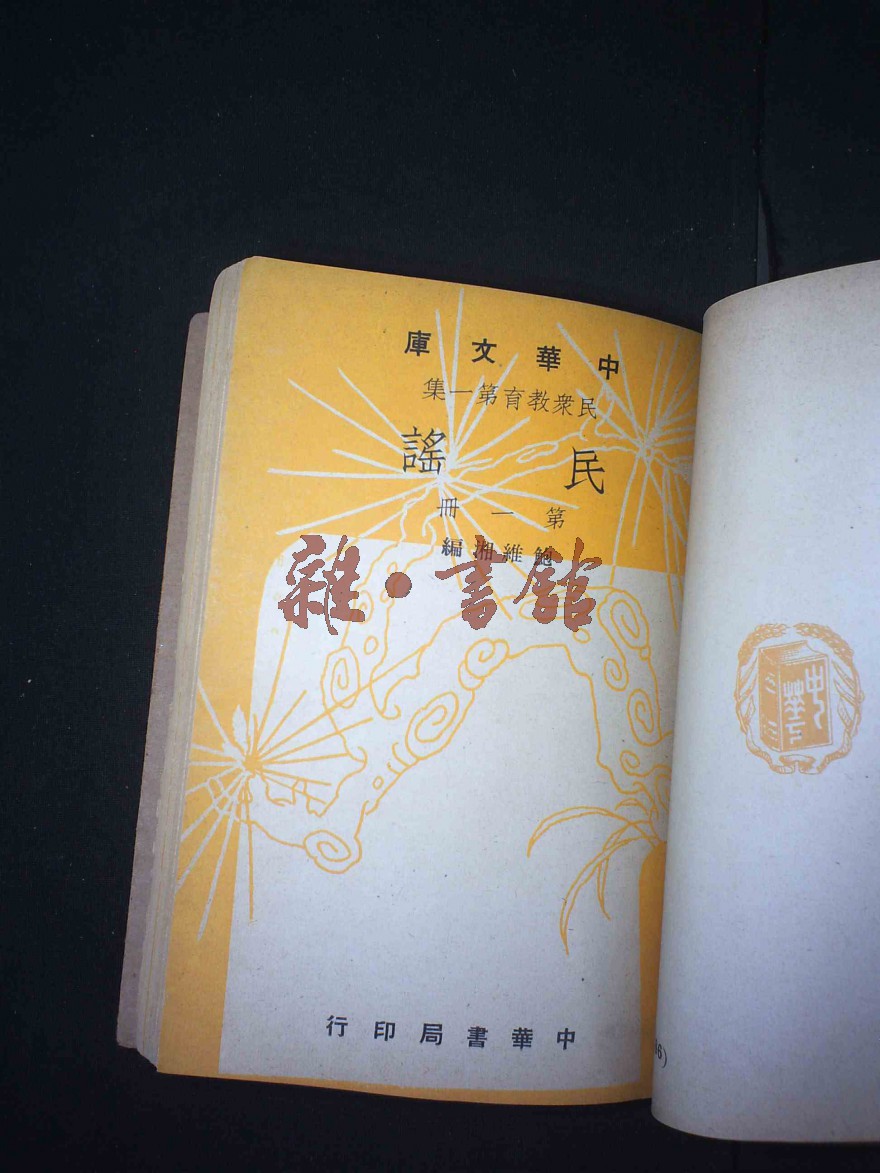 中華文庫
民衆教育第一集
民謠
第一冊
鮑維湘編
雜·書館
中華書局印行
中華
6)